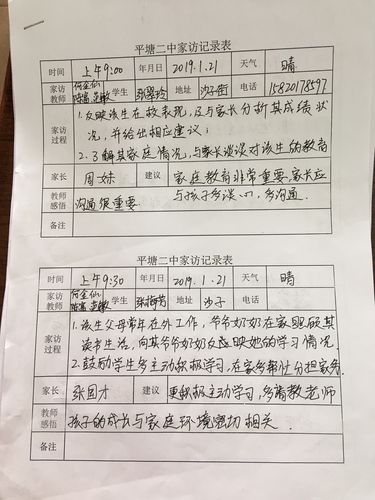 平塘二中家访记录表
时间 上午9:00 年月日 2019.1.21 天气 晴
家访教师 陈富 范敏 学生 张翠玲 地址 沙子街 电话 15820178597
家访过程 1.反映该生在校表现,及与家长分析其成绩状
况,并给出相应建议;
2.了解其家庭情况,与家长谈谈对该生的教育
家长 周妹 建议 家庭教育非常重要,家长应
与孩子多谈心,多沟通.
教师感悟 沟通很重要.
备注
平塘二中家访记录表
时间 上午9:30 年月日 2019.1.21 天气 晴
家访教师 陈富 范敏 学生 张梅芳 地址 沙子 电话
家访过程 1.该生父母常年在外工作,爷爷奶奶在家照顾其
读书生活,向其爷爷奶奶反应她的学习情况.
2.鼓励学生多主动积极学习,在家多帮忙分担家务.
家长 张国才 建议 更积极主动学习,多请教老师
教师感悟 孩子的成长与家庭环境密切相关.
备注